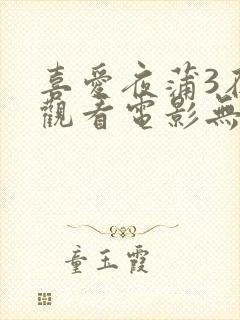 喜愛夜蒲3
觀看電影無
童玉霞